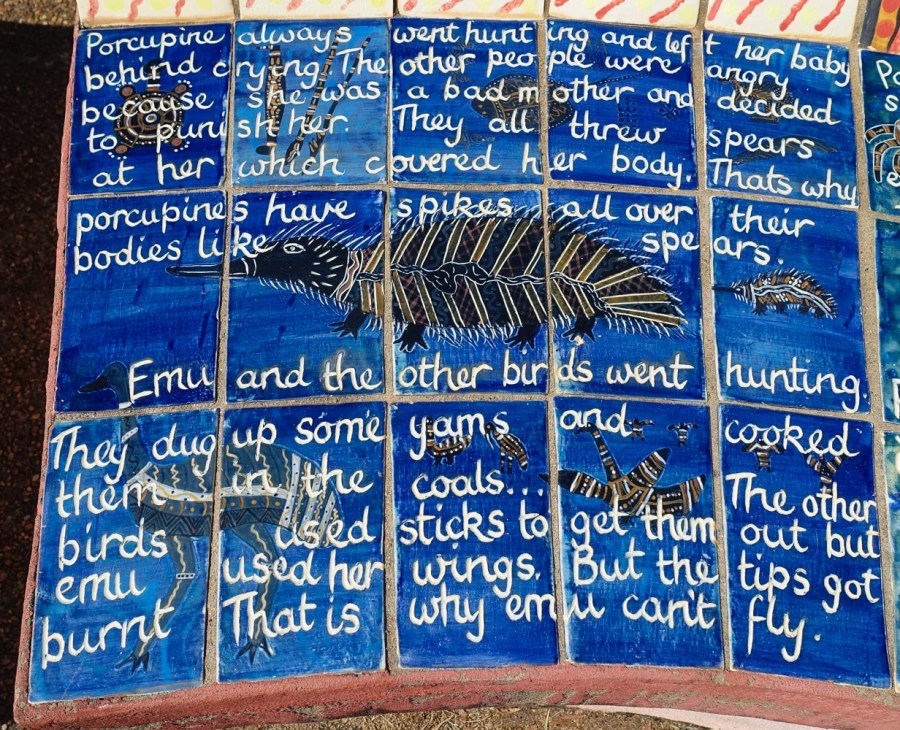 Porcupine always went hunting and left her baby
behind crying. The other people were angry
because she was a bad mother and decided
to punish her. They all threw spears
at her which covered her body. Thats why
porcupines have spikes all over their
bodies like spears.
Emu and the other birds went hunting.
They dug up some yams and cooked
them in the coals... The other
birds used sticks to get them out but
emu used her wings. But the tips got
burnt That is why emu can't fly.